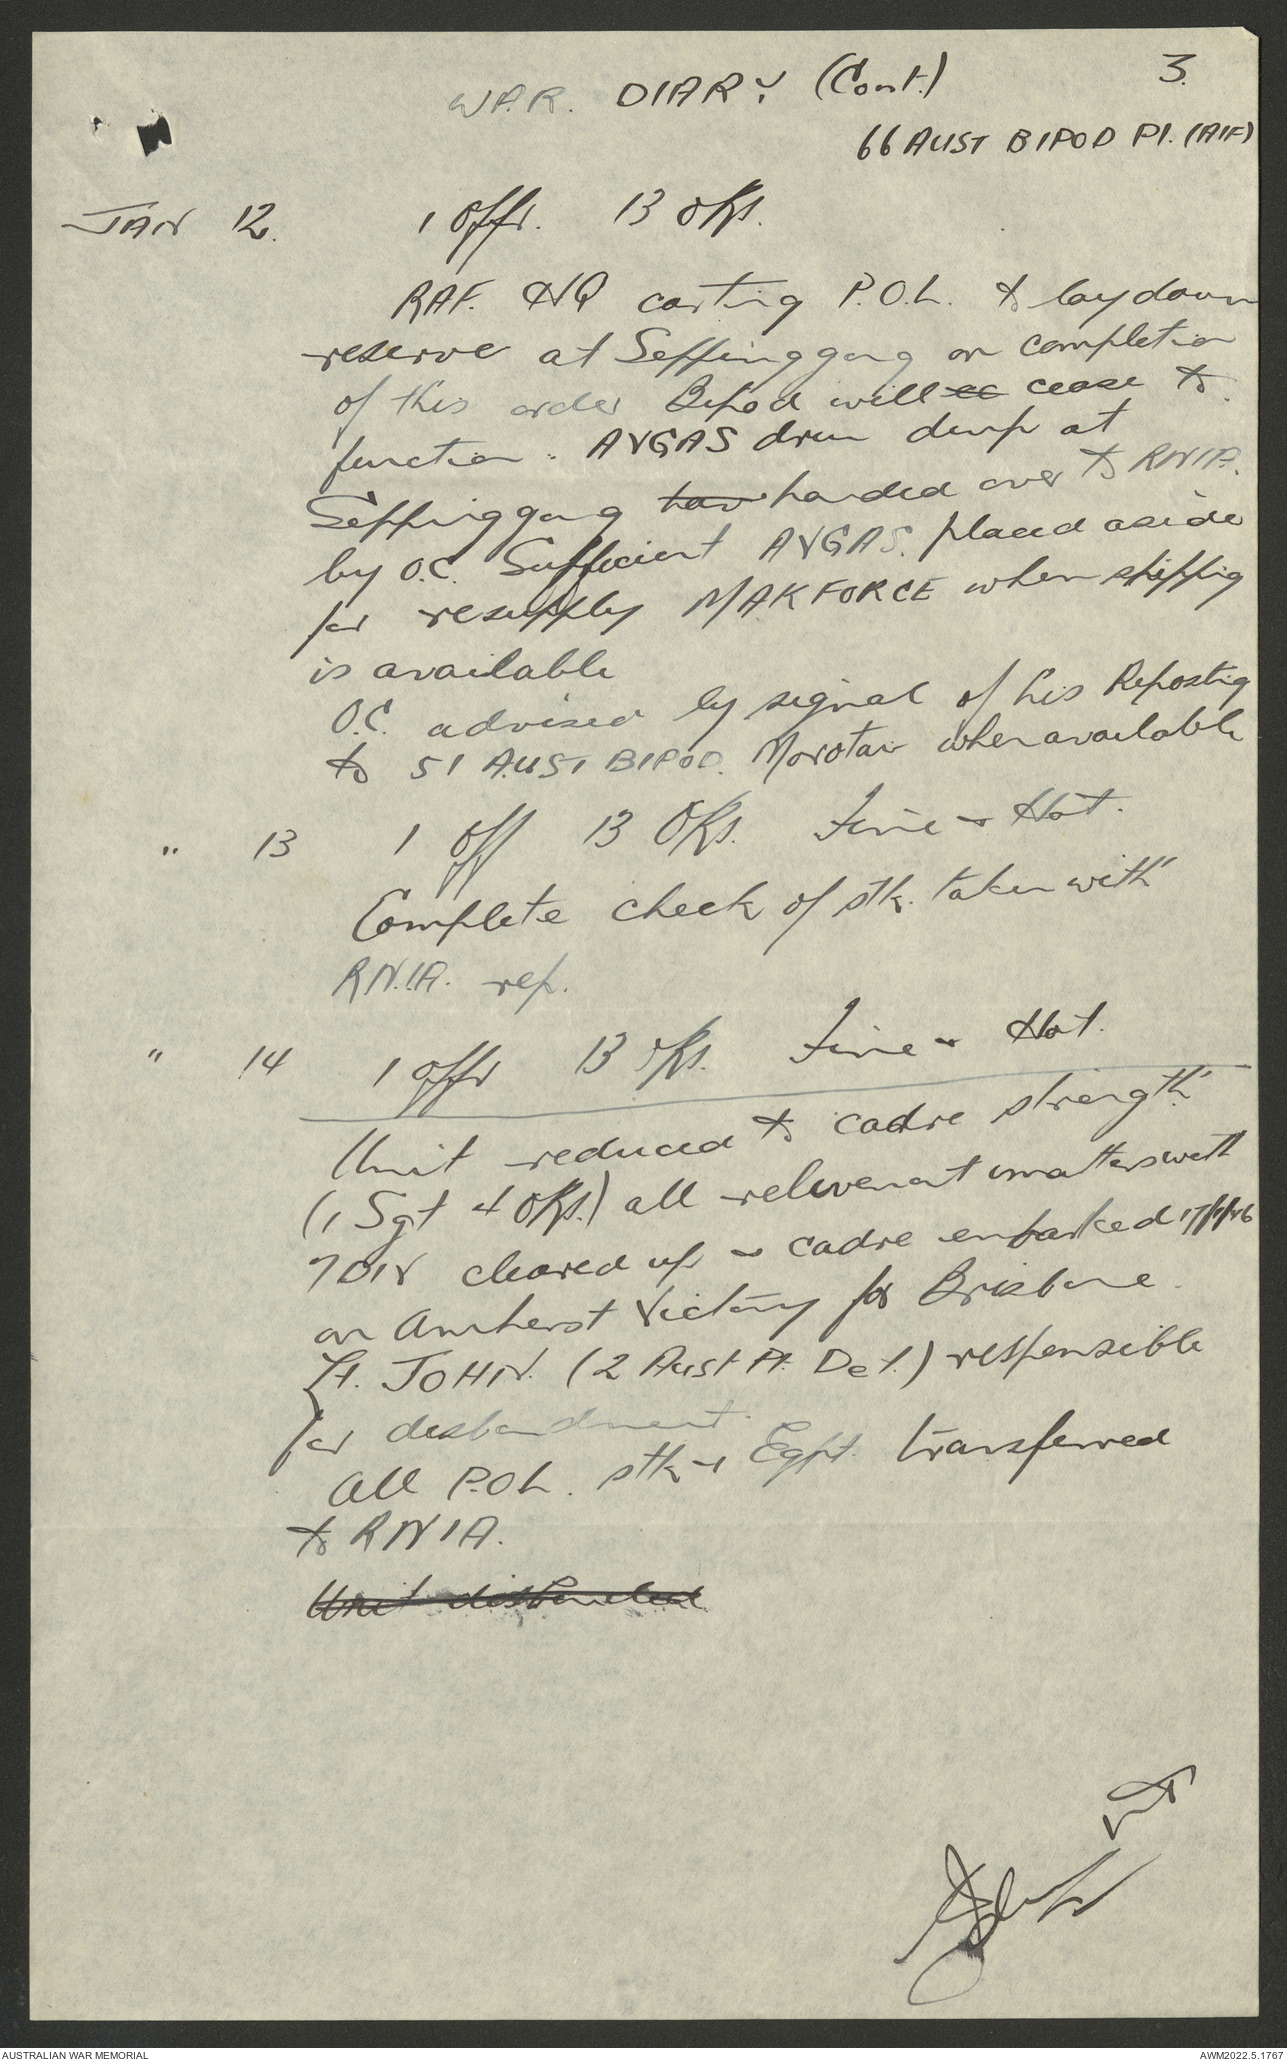 3.
WAR. DIARY (Cont.)
66 AUST BIPOD Pl. (AIF)
JAN 12. 1 Offr. 13 ORs.
RAF. HQ carting P.O.L. to lay down
reserve at Seppinggang on completion
of this order Bipod will cease to
function. AVGAS drum dump at
Seppinggang handed over to RNIA.
by O.C. Sufficient AVGAS. placed aside
for resupply MAKFORCE when shipping
is available
O.C. advised by signal of his Reposting
to 51 AUST BIPOD. Morotai when available
" 13 1 Off 13 ORs. Fine & Hot.
Complete check of stk. taken with
RNIA. rep.
" 14 1 offr 13 ORs. Fine & Hot.
Unit reduced to cadre strength
(1 Sgt 4 ORs.) all relevenant matters with
7 DIV cleared up & cadre embarked 17/1/46
on Amherst Victory for Brisbane
Lt. JOHN. (2 Aust Pt. Det.) responsible
for disbandment.
All P.O.L. stk & Eqpt. transferred
to RNIA.
Unit disbanded
AUSTRALIAN WAR MEMORIAL
AWM2022.5.1767